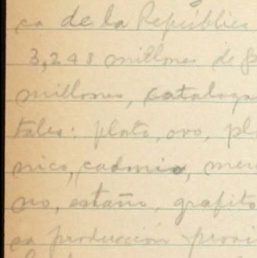 ca de la República
3,248 millones de
millones, cataloga
tales: plata, oro, plo
nico, cadmio, mer
no, estaño, grafito
sa producción provi